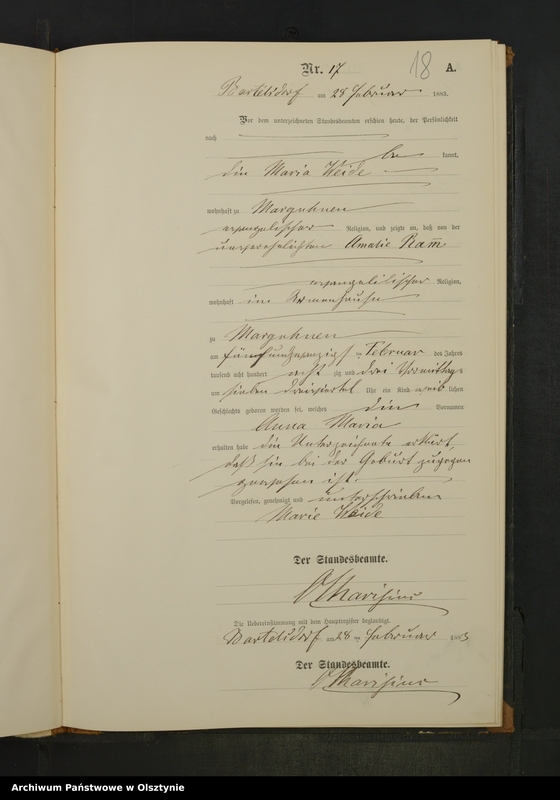 Nr. 17
18
A.
Bartelsdorf am 28 Februar 1883.
Vor dem unterzeichneten Standesbeamten erschien heute, der Persönlichkeit
nach
be kannt,
die Maria Weide
wohnhaft zu Marguhnen
evangelischer Religion, und zeigte an, daß von der
unverehelichten Amalie Ram̄
evangelischer Religion,
wohnhaft im Armenhause
zu Marguhnen
am fünfundzwanzigst en Februar des Jahres
tausend acht hundert acht zig und drei Vormittags
um sieben dreiviertel Uhr ein Kind weib lichen
Geschlechts geboren worden sei, welches die Vornamen
Anna Maria
erhalten habe die Unterzeichnete erklärt,
daß sie bei der Geburt zugegen
gewesen ist.
Vorgelesen, genehmigt und unterschrieben
Marie Weide
Der Standesbeamte.
Die Uebereinstimmung mit dem Hauptregister beglaubigt.
Bartelsdorf am 28 ten Februar 1883
Der Standesbeamte.
Archiwum Państwowe w Olsztynie